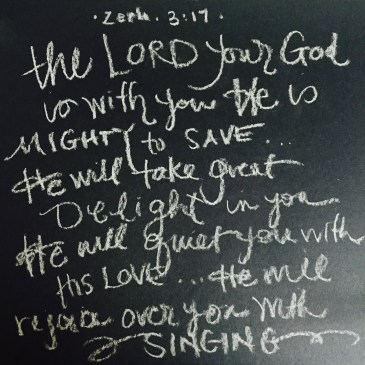 · Zeph. 3:17 ·
the LORD your God
is with you He is
MIGHTY to SAVE...
He will take great
Delight in you
He will quiet you with
His LOVE... He will
rejoice over you with
SINGING